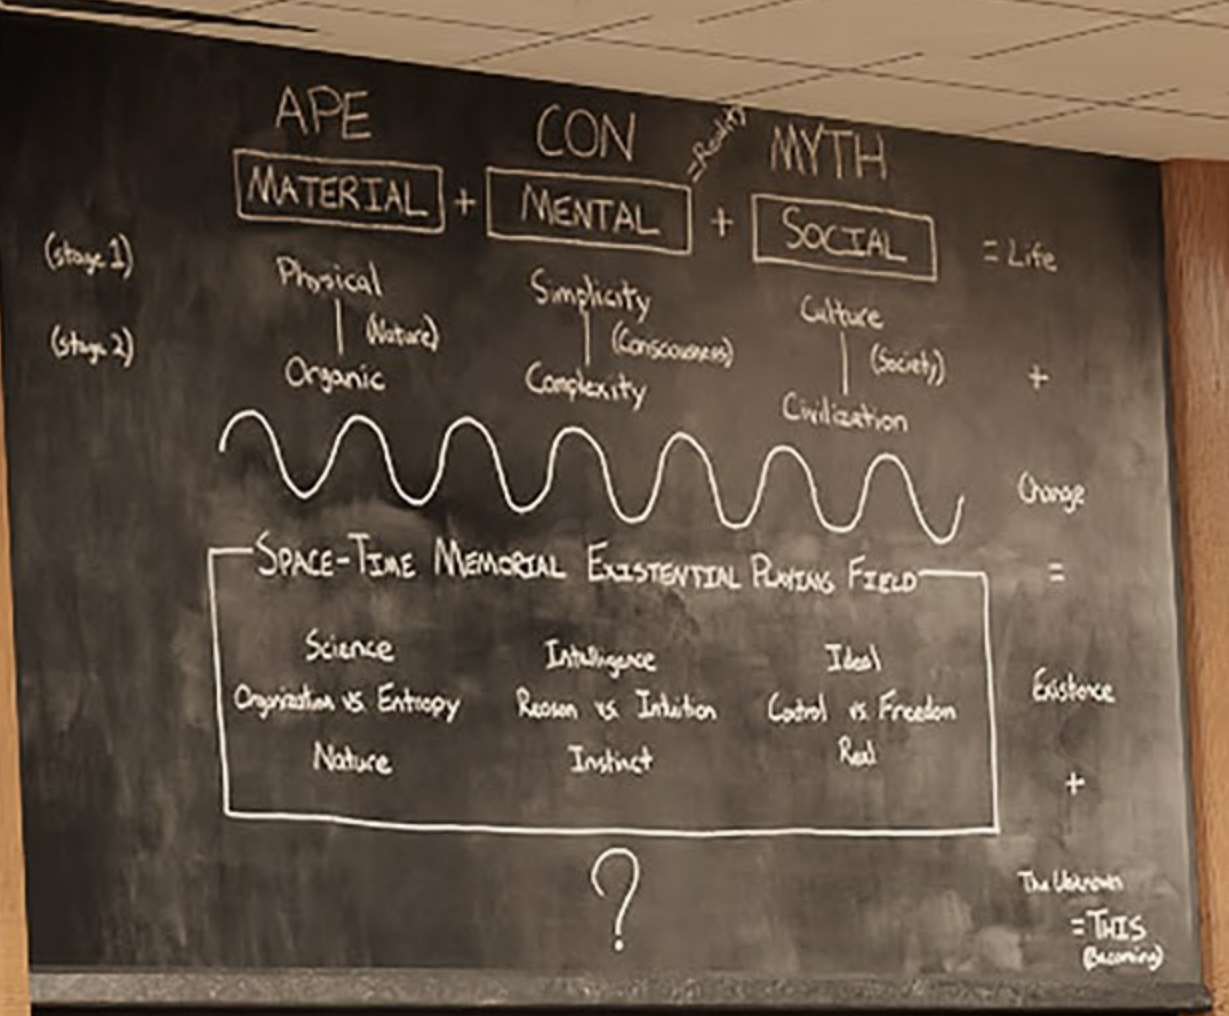 APE CON =Reality MYTH
MATERIAL + MENTAL + SOCIAL = Life
(stage 1) Physical Simplicity Culture
(Nature) (Consciousness) (Society)
(stage 2) Organic Complexity Civilization +
Change
SPACE-TIME MEMORIAL EXISTENTIAL PLAYING FIELD =
Science Intelligence Ideal
Organization vs. Entropy Reason vs. Intuition Control vs. Freedom Existence
Nature Instinct Real
+
?
The Unknown
=THIS
(Becoming)